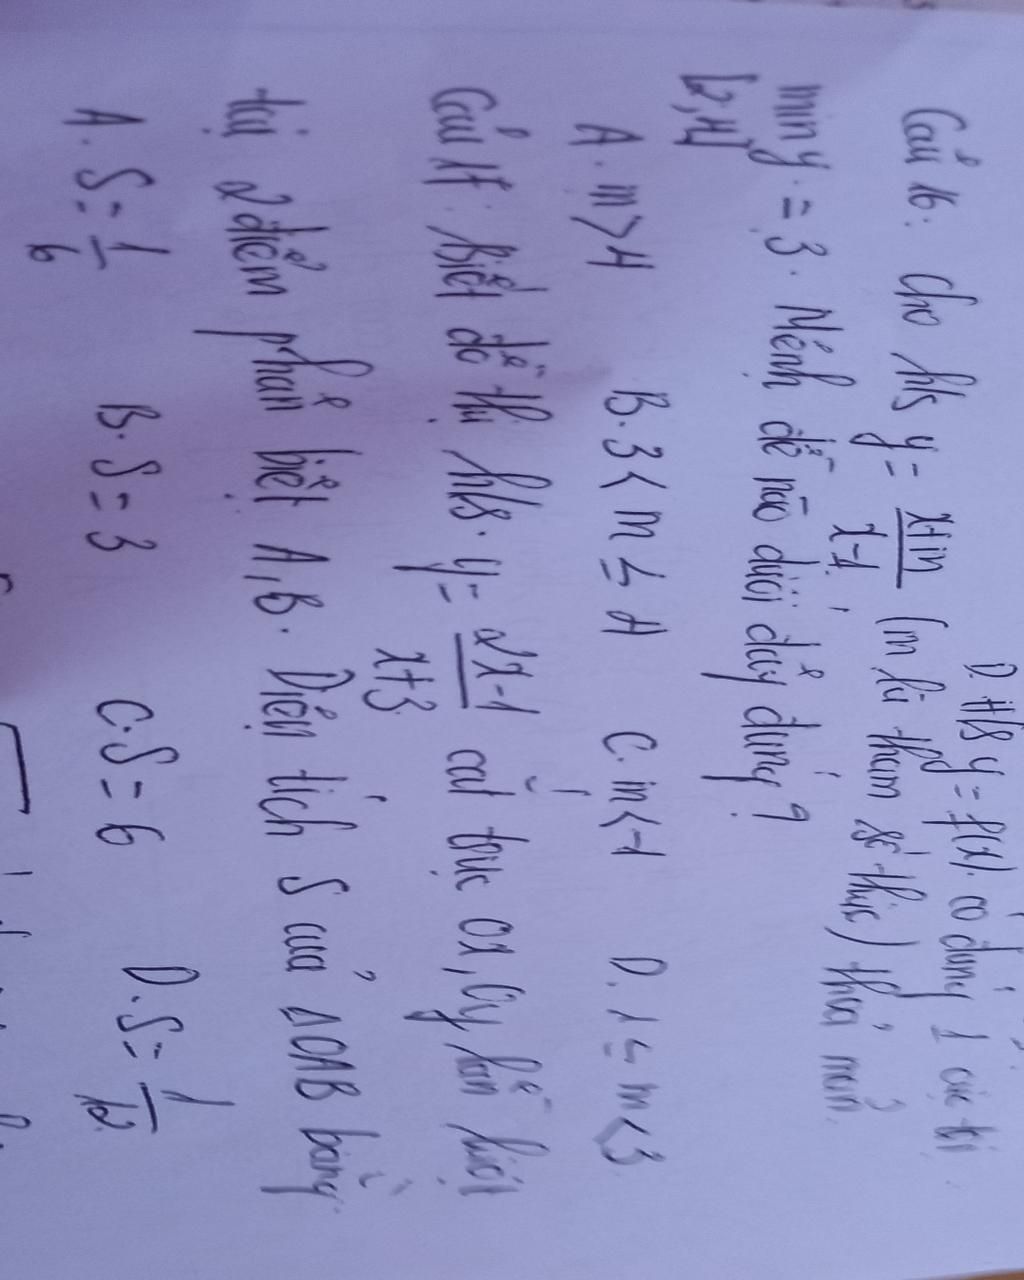 D. Hs y = f(x) có đúng 1 cực trị
Câu 16. Cho h/s y = \frac{x+m}{x-1} (m là tham số thực) thỏa mãn
min y = 3. Mệnh đề nào dưới đây đúng?
[2;4]
A. m > 4 B. 3 < m ≤ 4 C. m < -1 D. 1 ≤ m < 3
Câu 17. Biết đồ thị h/s. y = \frac{2x-1}{x+3} cắt trục Ox, Oy lần lượt
tại 2 điểm phân biệt A, B. Diện tích S của ΔOAB bằng
A. S = \frac{1}{6} B. S = 3 C. S = 6 D. S = \frac{1}{12}